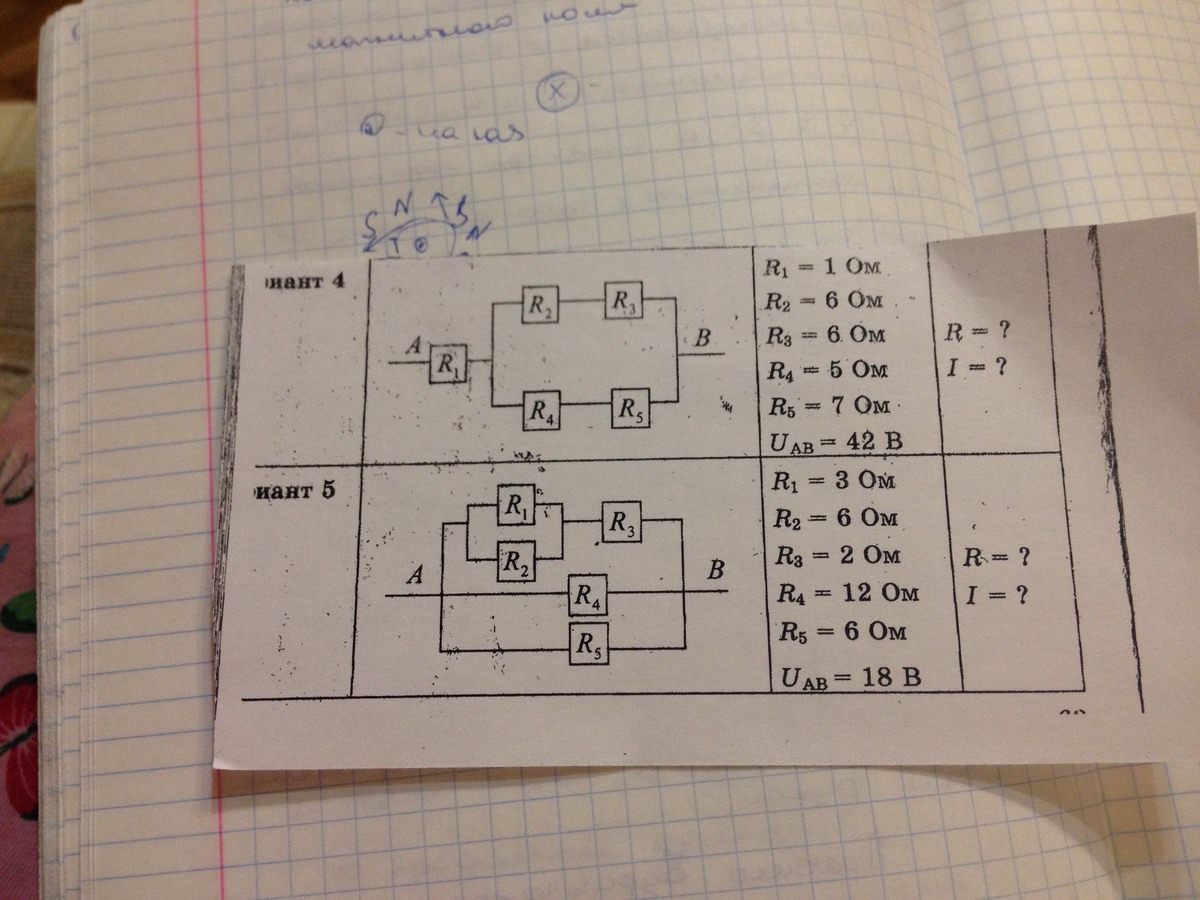 магнитного поля
X
S N B N
риант 4
A
R₁
R₂
R₃
R₄
R₅
B
R₁ = 1 Ом
R₂ = 6 Ом
R₃ = 6 Ом
R₄ = 5 Ом
R₅ = 7 Ом
U_AB = 42 В
R = ?
I = ?
риант 5
A
R₁
R₂
R₃
R₄
R₅
B
R₁ = 3 Ом
R₂ = 6 Ом
R₃ = 2 Ом
R₄ = 12 Ом
R₅ = 6 Ом
U_AB = 18 В
R = ?
I = ?